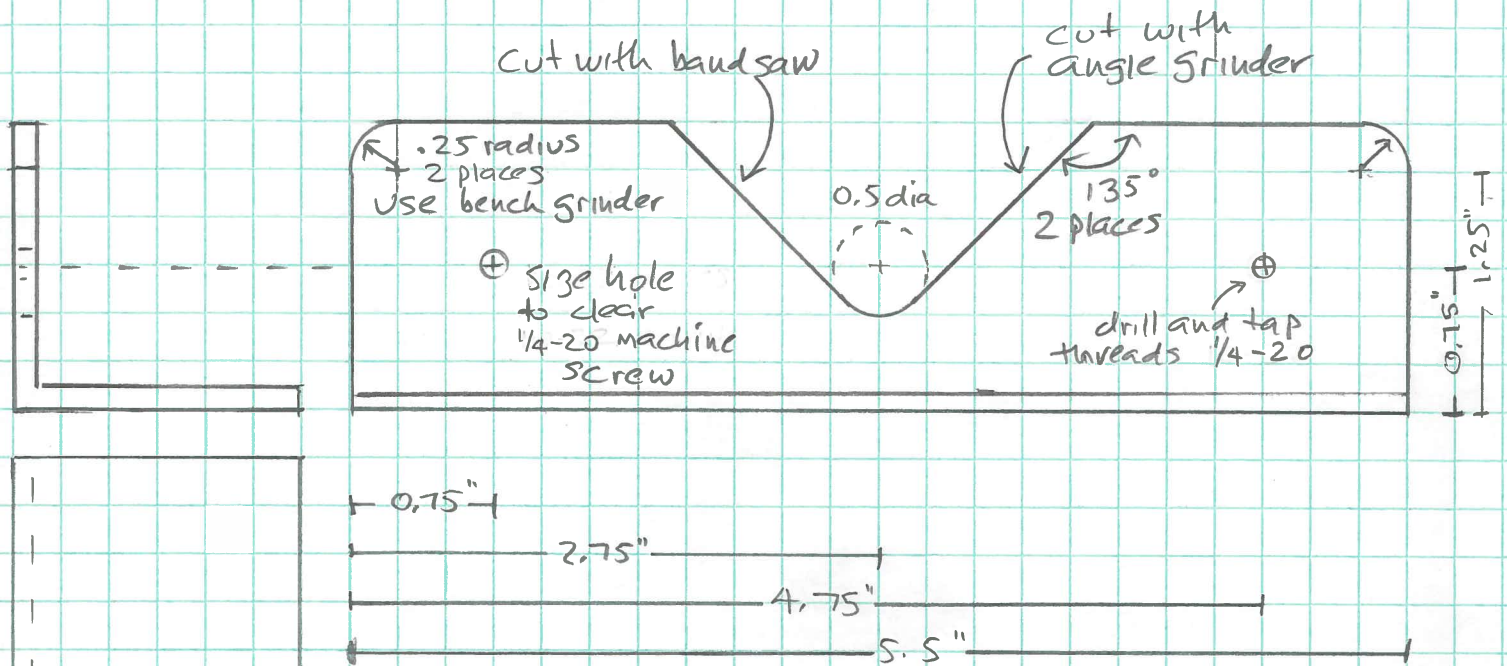 cut with bandsaw
cut with
angle grinder
.25 radius
2 places
use bench grinder
0.5 dia
135°
2 places
size hole
to clear
1/4-20 machine
screw
drill and tap
threads 1/4-20
0.75"
1.25"
0.75"
2.75"
4.75"
5.5"